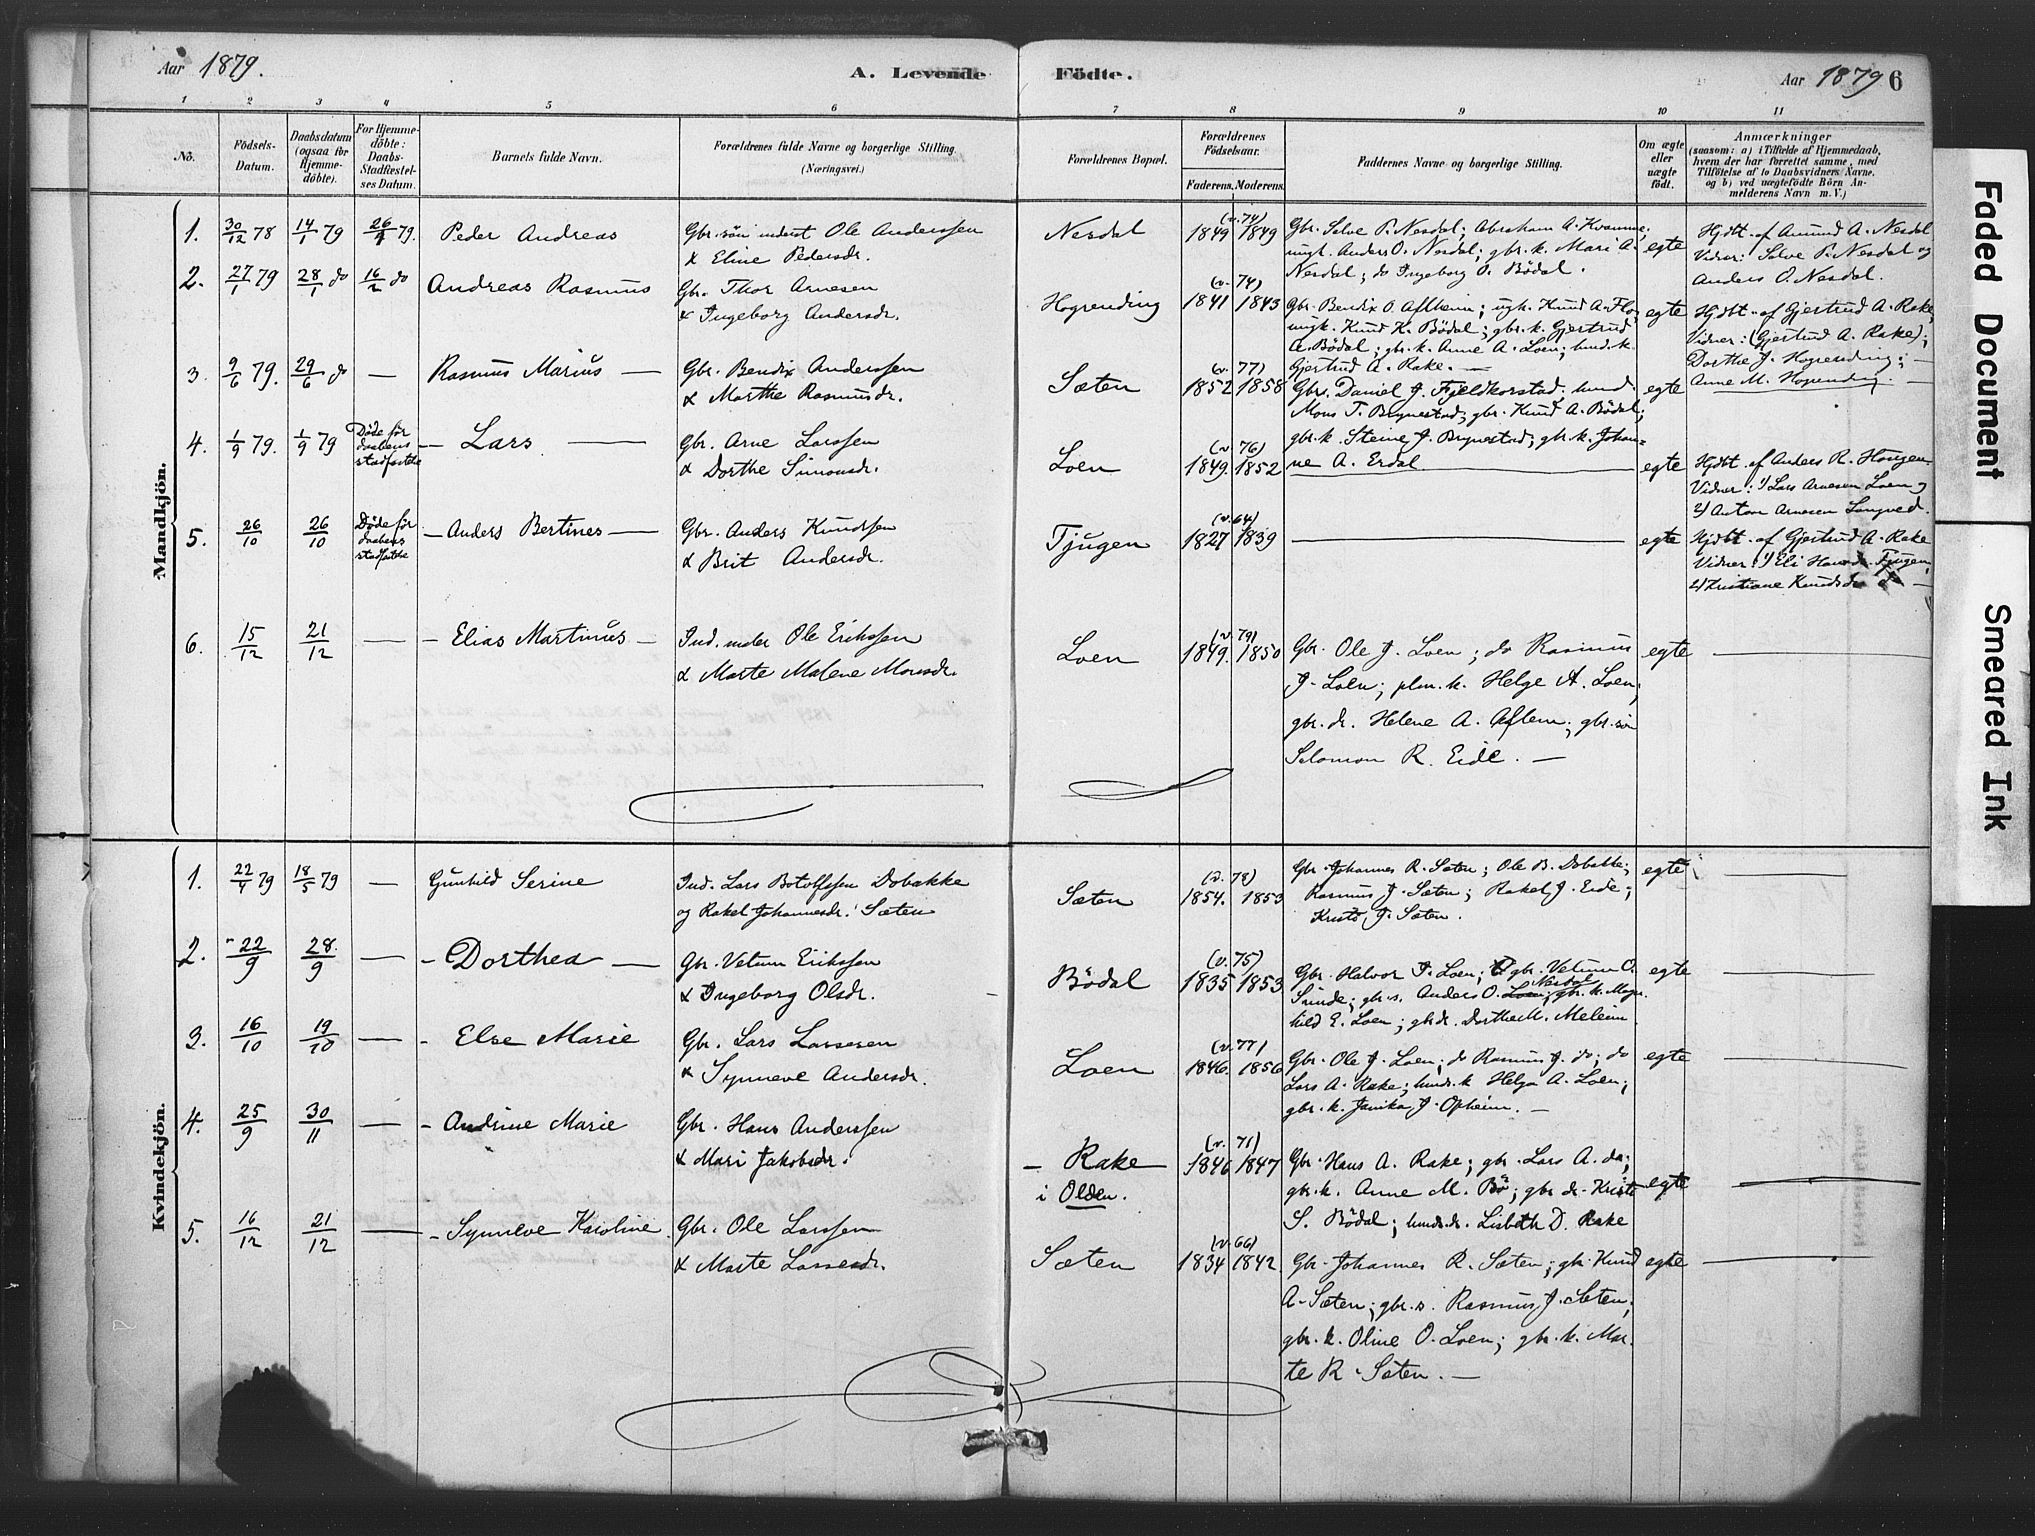 Aar 1879.
A. Levende Födte.
Aar 1879 6
1 2 3 4 5 6 7 8 9 10 11
No.
Födsels-Datum.
Daabsdatum (ogsaa for Hjemme-döbte).
For Hjemme-döbte: Daabs-Stadfæstel-ses Datum.
Barnets fulde Navn.
Forældrenes fulde Navne og borgerlige Stilling. (Næringsvei.)
Forældrenes Bopæl.
Forældrenes Födselsaar.
Faderens. Moderens.
Faddernes Navne og borgerlige Stilling.
Om ægte eller uægte födt.
Anmærkninger
(saasom: a) i Tilfælde af Hjemmedaab,
hvem der har forrettet samme, med
Tilföielse af to Daabsvidners Navne,
og b) ved uægtefödte Börn An-
melderens Navn m. V.)
Mandkjön.
1. 30/12 78 14/1 79 79. Peder Andreas
Gbr. søn inderst Ole Anderssen
& Eline Pedersdr.
Nesdal
(v. 74)
1849 1849
Gbr. Salve P. Nesdal; Abraham A. Kvamme;
ungk. Anders O. Nesdal; gbr. k. Mari A.
Nesdal; do Ingeborg O. Bödal.
egte
Hjdbt. af Amund A. Nesdal
Vidner: Salve P. Nesdal og
Anders O. Nesdal.
2. 27/1 79 28/1 do 16/2 do Andreas Rasmus
Gbr. Thor Arnesen
& Ingeborg Andersdr.
Hogrending
(v. 74)
1841 1843
Gbr. Bendix O. Aflheim; ugk. Knud A. Flo;
ungk. Knud K. Bödal; gbr. k. Gjertrud
A. Bödal; gbr. k. Anne A. Loen; hmd. k.
Gjertrud A. Rake. —
egte
Hjdbt. af Gjertrud A. Rake,
Vidner: (Gjertrud A. Rake);
Dorthe J. Hogrending; —
Anne M. Hogrending. —
3. 9/6 79. 29/6 do — Rasmus Marius —
Gbr. Bendix Anderssen
& Marthe Rasmusdr.
Sæten
(v. 77)
1852 1858
Gbr. Daniel J. Fjeldkorstad; hmd.
Mons T. Brynestad; gbr. Knud A. Bödal;
gbr. k. Steine J. Brynestad; gbr. k. Johan-
ne A. Erdal
egte
4. 1/9 79. 1/9 79 Döde för daabens stadfæstelse — Lars —
Gbr. Arne Larssen
& Dorthe Simonsdr.
Loen
(v. 76)
1849. 1852
egte
Hjdbt. af Anders R. Haugen.
Vidner: 1/ Lars Arnesen Loen og
2/ Anton Arnesen Langved.
5. 26/10 26/10 Döde för daabens stadfæstelse — Anders Bertines —
Gbr. Anders Knudssen
& Brit Andersdr.
Tjugen
(v. 64)
1827 1839
egte
Hjdbt. af Gjertrud A. Rake
Vidner: 1/ Eli Hansdr. Tjugen,
2/ Kristiane Knudsdr. —
6. 15/12 21/12 — — Elias Martinus —
Ind. mder Ole Erikssen
& Marte Malene Monsdr.
Loen
(v. 79)
1849. 1850
Gbr. Ole J. Loen; do Rasmus
J. Loen; plm. k. Helge A. Loen;
gbr. dr. Helene A. Aflem; gbr. søn
Salomon R. Eide. —
egte
Kvindekjön.
1. 22/4 79 18/5 79 — Gunhild Serine
Ind. Lars Botolfssen Dobakke
og Rakel Johannesdr. Sæten
Sæten
(v. 78)
1854. 1853
Gbr. Johannes R. Sæten; Ole B. Dobakke;
Rasmus J. Sæten; Rakel J. Eide;
Kristi J. Sæten.
egte
2. 22/9 28/9 — — Dorthea —
Gbr. Vetum Erikssen
& Ingeborg Olsdr.
Bödal
(v. 75)
1835 1853
Gbr. Halvor J. Loen; gbr. Vetum O.
Sunde; gbr. s. Anders O. Loen Nesdal; gbr. k. Magn-
hild E. Loen; gbr. dr. Dorthe M. Meleim.
egte
3. 16/10 19/10 — — Else Marie
Gbr. Lars Larssen
& Synneve Andersdr.
Loen
(v. 77)
1846. 1856
Gbr. Ole J. Loen; do Rasmus J. do; do
Lars A. Rake; hmds. k. Helga A. Loen;
gbr. k. Janika J. Opheim. —
egte
4. 25/9 30/11 — — Andrine Marie
Gbr. Hans Anderssen
& Mari Jakobsdr.
— Rake
i Olden.
(v. 71)
1846 1847
Gbr. Hans A. Rake; gbr. Lars A. do;
gbr. k. Anne M. Bö; gbr. dr. Kristi
S. Bödal; hmds. dr. Lisbeth D. Rake
egte
5. 16/12 21/12 — — Synneve Karoline.
Gbr. Ole Larssen
& Marte Larssdr.
Sæten
(v. 66)
1834 1842
Gbr. Johannes R. Sæten; gbr. Knud
A. Sæten; gbr. s. Rasmus J. Sæten;
gbr. k. Oline O. Loen; gbr. k. Mar-
te R. Sæten. —
egte
Faded Document
Smeared Ink